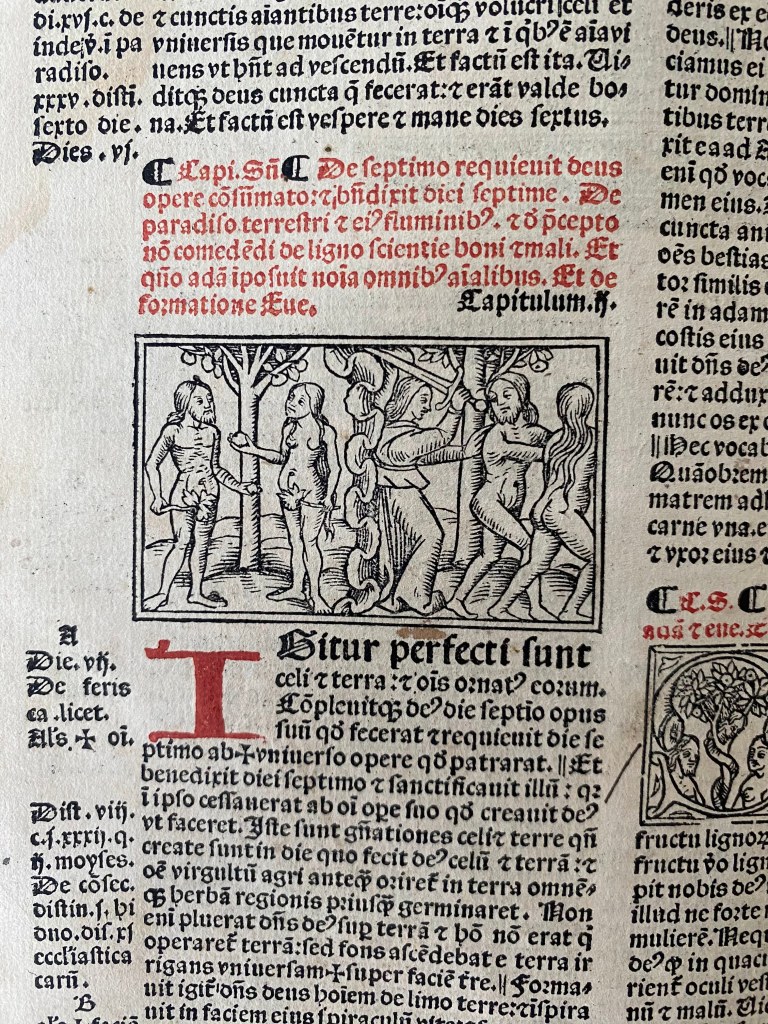 di.xvs.c. de
inde.v̄.ī pa
radiso.
xxxv.distī.
sexto die.
Dies.vj.
⁊ cunctis aīantibus terre:oīq̄ȝ volucri celi et
vniuersis que mouētur in terra ⁊ ī q̇bꝰ ē aīa vi
uens vt hn̄t ad vescendū. Et factū est ita. Ui⸗
ditq̄ȝ deus cuncta q̄ fecerat:⁊ erāt valde bo⸗
na. Et factū est vespere ⁊ mane dies sextus.
¶ Capi. Sn̄. ¶ De septimo requieuit deus
opere cōsūmato:⁊ bn̄dixit diei septime. De
paradiso terrestri ⁊ eiꝰ fluminibꝰ. ⁊ đ p̄cepto
nō comedēdi de ligno scientie boni ⁊ mali. Et
qn̄o adā īposuit noīa omnibꝰ aīalibus. Et de
formatione Eue. Capitulum.ij.
A
Die.vij.
De feris
ca.licet.
Als.✛ oī.
Dist.viij.
c.j.xxxij.q.
ij.moyses.
De cōsec.
distin.j. hi
duo.dis.xj
ecclīastica
carū.
B
IGitur perfecti sunt
celi ⁊ terra:⁊ oīs ornatꝰ eorum.
Cōpleuitq̄ȝ deꝰ die septīo opus
suū qđ fecerat ⁊ requieuit die se
ptimo ab ✛ vniuerso opere qđ patrarat. ‖ Et
benedixit diei septimo ⁊ sanctificauit illū: qꝛ
ī ipso cessauerat ab oī ope suo qđ creauit deꝰ
vt faceret. Iste sunt gn̄ationes celi ⁊ terre qn̄
create sunt in die quo fecit deꝰ celū ⁊ terrā:⁊
oē virgultū agri anteq̄ȝ oriret̄ in terra omnē⸗
q̄ȝ herbā regionis priusq̄ȝ germinaret. Non
eni pluerat dn̄s deꝰ sup terrā ⁊ hō nō erat q̇
operaret̄ terrā:sed fons ascēdebat e terra ir
rigans vniuersam ✛ super faciē tr̄e. ‖ Forma⸗
uit igit̄ dn̄s deus hoīem de limo terre:⁊ īspira
uit in faciem eius spiraculū
deris ex e
deus. ‖ No
ciamus ei
tur domin
tibus terr
xit ea ad A
enī qđ voc
men eius.
cuncta an
oēs bestias
tor similis
rē in adam
costis eius
uit dn̄s deꝰ
rē:⁊ addux
nunc os ex
‖ Hec vocab
Quāobrem
matrem adh
carne vna.e
⁊ vxor eius ⁊
¶ C.S. ¶
⁊ eue.⁊
fructu lignoꝝ
fructu v̄o lign
pit nobis deꝰ
illud ne forte
mulierē. Neq
deꝰ q̄ in quacū
rient̄ oculi ves
nū ⁊ malū.